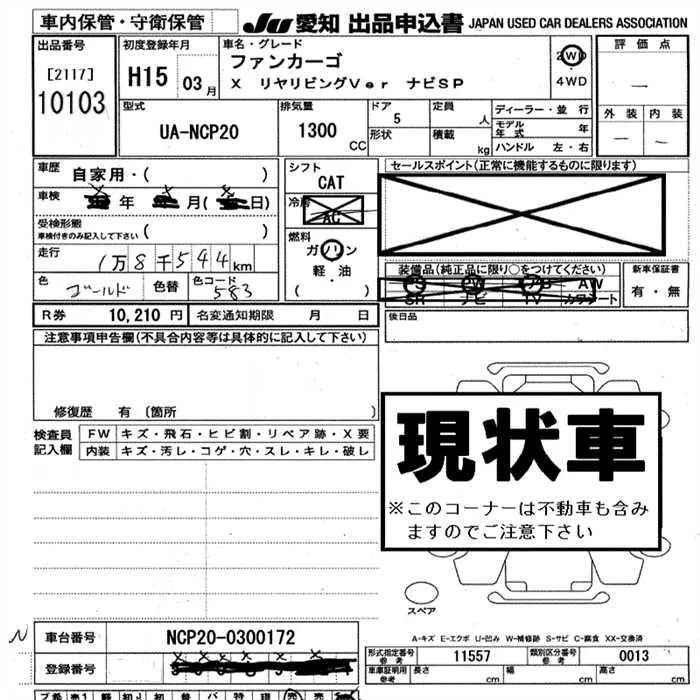 車内保管・守衛保管
JU 愛知 出品申込書 JAPAN USED CAR DEALERS ASSOCIATION
出品番号
[2117]
10103
初度登録年月
H15 03 月
車名・グレード
ファンカーゴ
X リヤリビングVer ナビSP
2WD
4WD
評価点
—
外装 内装
— —
型式
UA-NCP20
排気量
1300 CC
ドア
5
形状
定員
人
積載
kg
ディーラー・並行
モデル年式 年
ハンドル 左・右
車歴
自家用・( )
車検
年 月( 日)
受検形態
車検付きのみ記入して下さい ( )
走行
1万8千544km
色
ゴールド
色替
色コード
583
シフト
CAT
冷房
AC
燃料
ガソリン
軽・油
( )
セールスポイント(正常に機能するものに限ります)
装備品(純正品に限り○をつけてください)
PS PW AB AW
SR ナビ TV カワシート
新車保証書
有・無
R券 10,210 円
名変通知期限 月 日
後日品
注意事項申告欄(不具合内容等は具体的に記入して下さい)
修復歴 有〔箇所 〕
検査員記入欄
FW キズ・飛石・ヒビ割・リペア跡・X要
内装 キズ・汚レ・コゲ・穴・スレ・キレ・破レ
現状車
※このコーナーは不動車も含み
ますのでご注意下さい
スペア
A-キズ E-エクボ U-凹み W-補修跡 S-サビ C-腐食 XX-交換済
N
車台番号
NCP20-0300172
登録番号
形式指定番号 参考
11557
類別区分番号 参考
0013
車庫証明用 参考
長さ cm
幅 cm
高さ cm